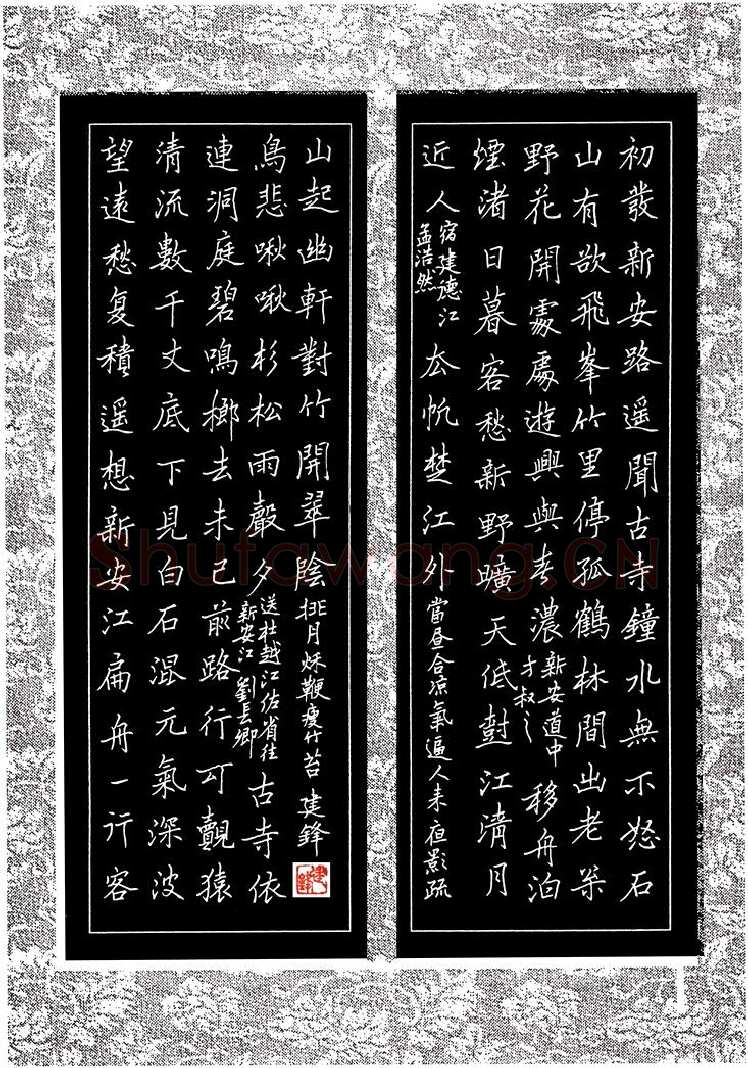 初發新安路遥聞古寺鐘水無不怒石
山有欲飛峯竹里停孤鶴林間出老
野花開處處遊興與春濃
新安道中
才叔之
移舟泊
煙渚日暮客愁新野曠天低樹江清月
近人
宿建德江
孟浩然
去帆楚江外
當昼合凉氣逼人未夜影疏
山起幽軒對竹開翠陰
月鞭瘦竹苔 建鋒
建鋒
鳥悲啾啾杉松雨聲夕
送杜越江佐省往
新安江 劉長卿
古寺依
連洞庭碧鳴榔去未已前路行可覿猿
清流數千丈底下見白石混元氣深波
望遠愁复積遥想新安江扁舟一行客
Shufawang.CN